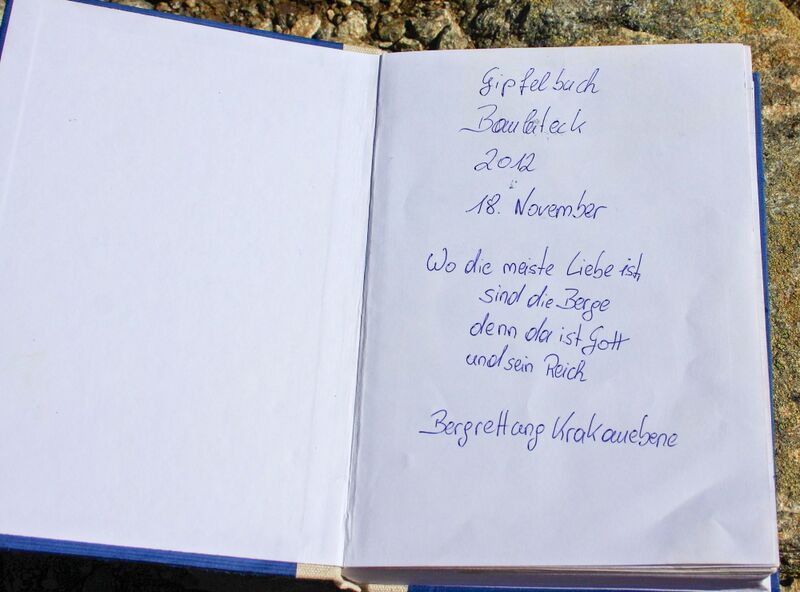 Gipfelbuch
Bauleiteck
2012
18. November
Wo die meiste Liebe ist,
sind die Berge
denn da ist Gott
und sein Reich
Bergrettung Krakauebene